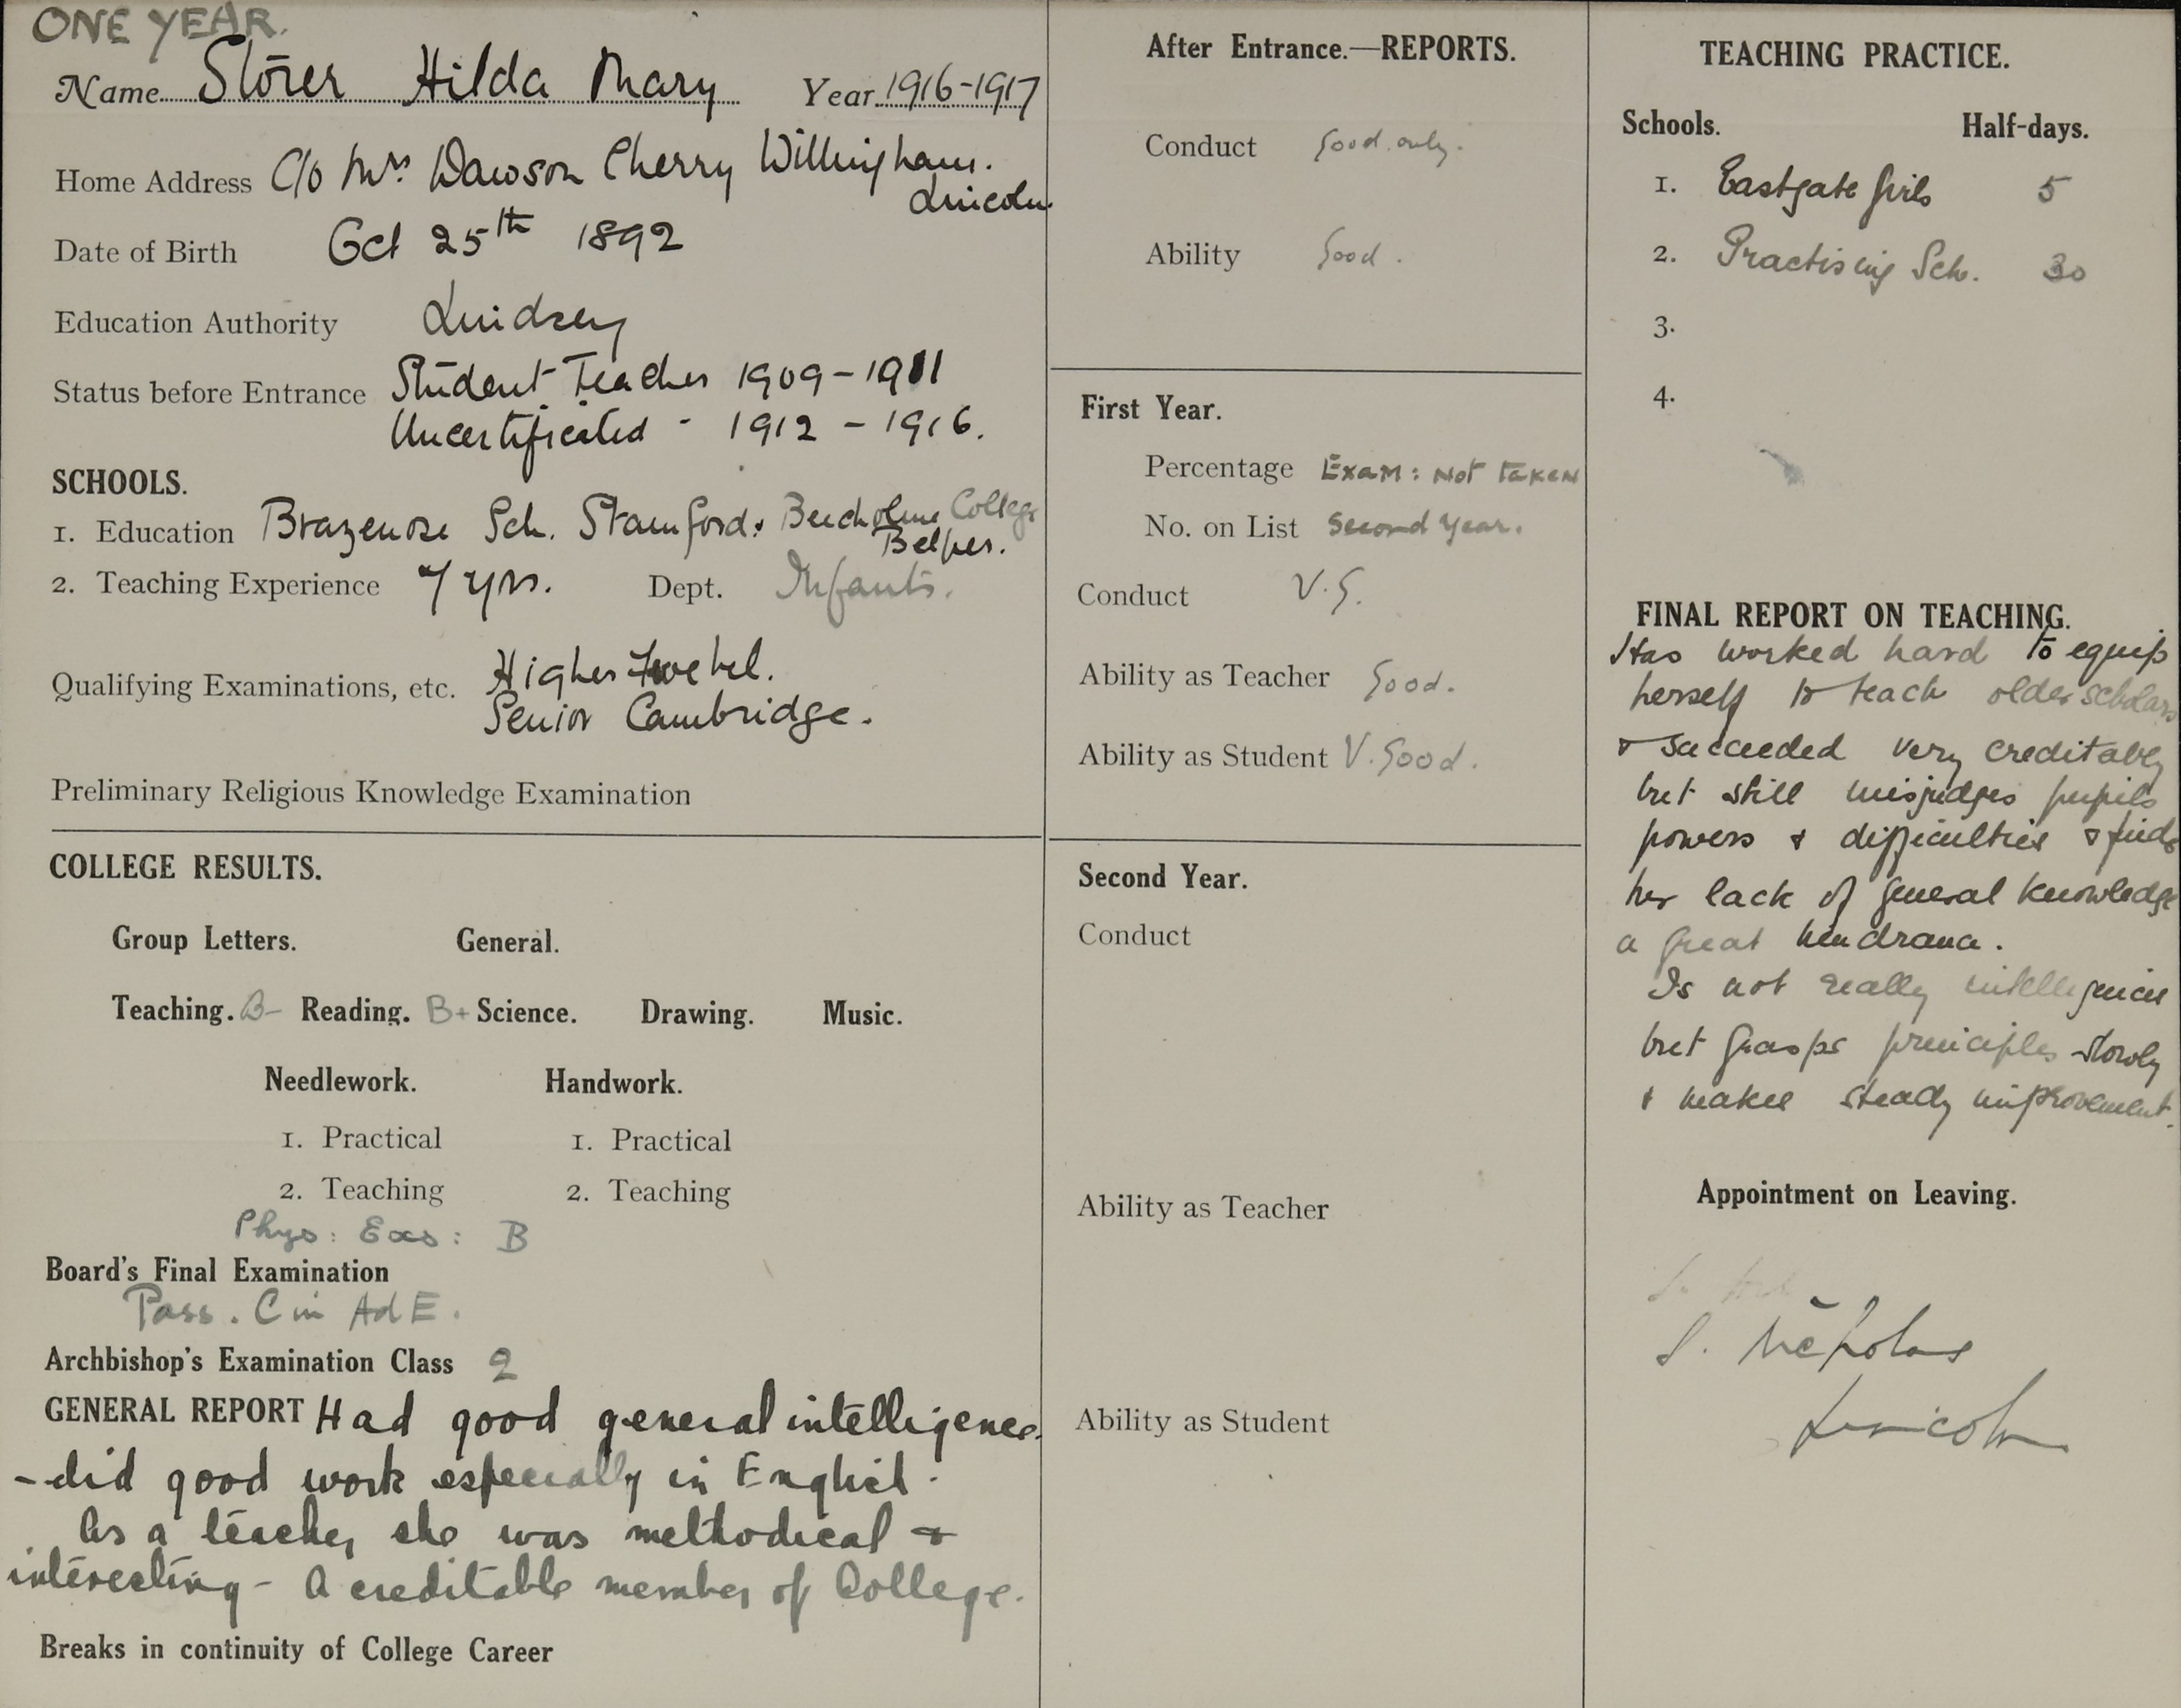 ONE YEAR.
Name Storer Hilda Mary Year 1916-1917
Home Address C/o Mrs Dawson Cherry Willingham.
Lincoln.
Date of Birth Oct 25th 1892
Education Authority Lindsey
Status before Entrance Student Teacher 1909-1911
Uncertificated - 1912 - 1916.
SCHOOLS.
1. Education Brazenose Sch. Stamford. Beecholme College
Belper.
2. Teaching Experience 7 yrs. Dept. Infants.
Qualifying Examinations, etc. Higher Froebel.
Senior Cambridge.
Preliminary Religious Knowledge Examination
COLLEGE RESULTS.
Group Letters. General.
Teaching. B- Reading. B+ Science. Drawing. Music.
Needlework. Handwork.
1. Practical 1. Practical
2. Teaching 2. Teaching
Phys: Exs: B
Board's Final Examination
Pass. C in Ad E.
Archbishop's Examination Class 2
GENERAL REPORT Had good general intelligence.
- did good work especially in English.
As a teacher she was methodical &
interesting - A creditable member of College.
Breaks in continuity of College Career
After Entrance.—REPORTS.
Conduct Good only.
Ability Good.
First Year.
Percentage Exam: Not taken
No. on List Second Year.
Conduct V.G.
Ability as Teacher Good.
Ability as Student V. Good.
Second Year.
Conduct
Ability as Teacher
Ability as Student
TEACHING PRACTICE.
Schools. Half-days.
1. Eastgate Girls 5
2. Practising Sch. 30
3.
4.
FINAL REPORT ON TEACHING.
Has worked hard to equip
herself to teach older scholars
& succeeded very creditably
but still misjudges pupils
powers & difficulties & finds
her lack of general knowledge
a great hindrance.
Is not really
but grasps principles slowly
& makes steady improvement.
Appointment on Leaving.
S. Nicholas
Lincoln